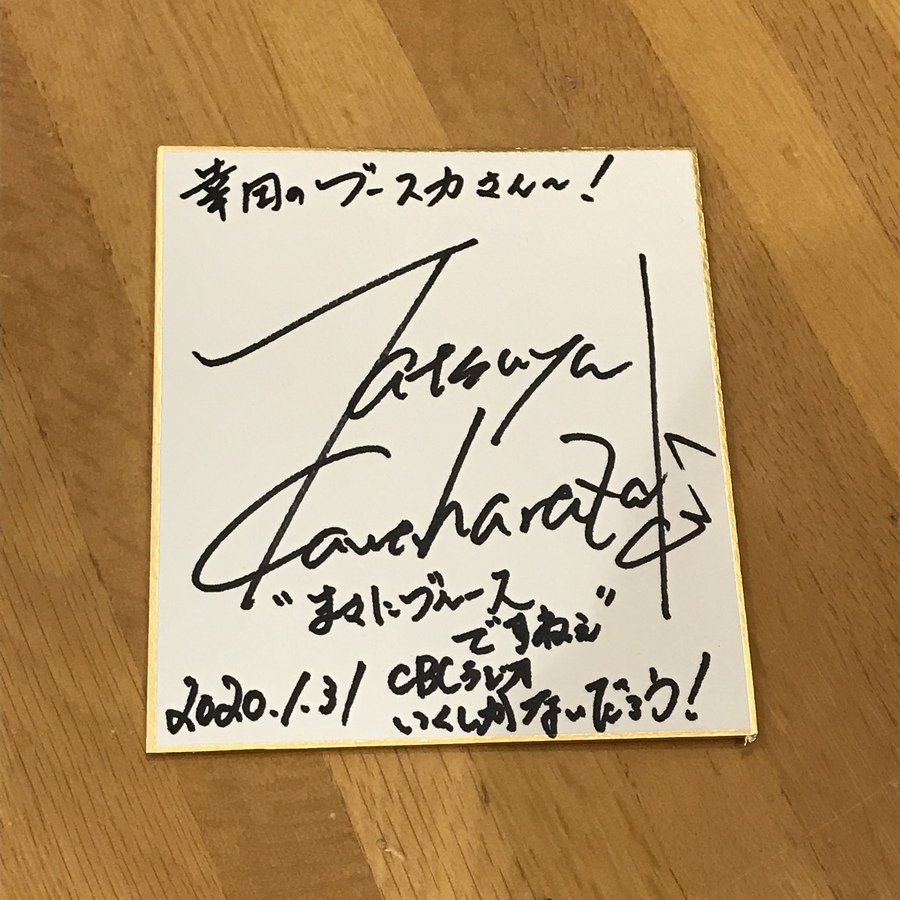 幸田のブースカさん〜!
Tatsuya
"まさにブルース
ですねぇ"
2020.1.31
CBCラジオ
いくしかないだろう!